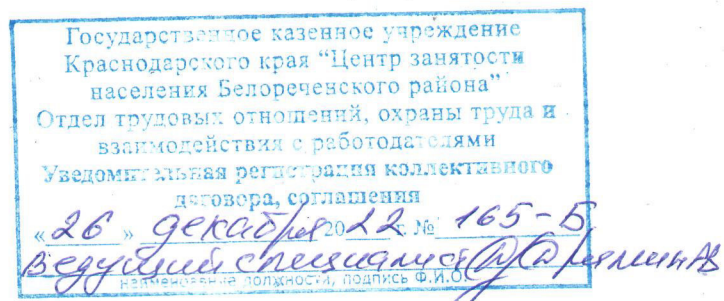 Государственное казенное учреждение
Краснодарского края “Центр занятости
населения Белореченского района”
Отдел трудовых отношений, охраны труда и
взаимодействия с работодателями
Уведомительная регистрация коллективного
договора, соглашения
«26» декабря 2022 г. № 165-Б
Ведущий специалист
наименование должности, подпись Ф.И.О.